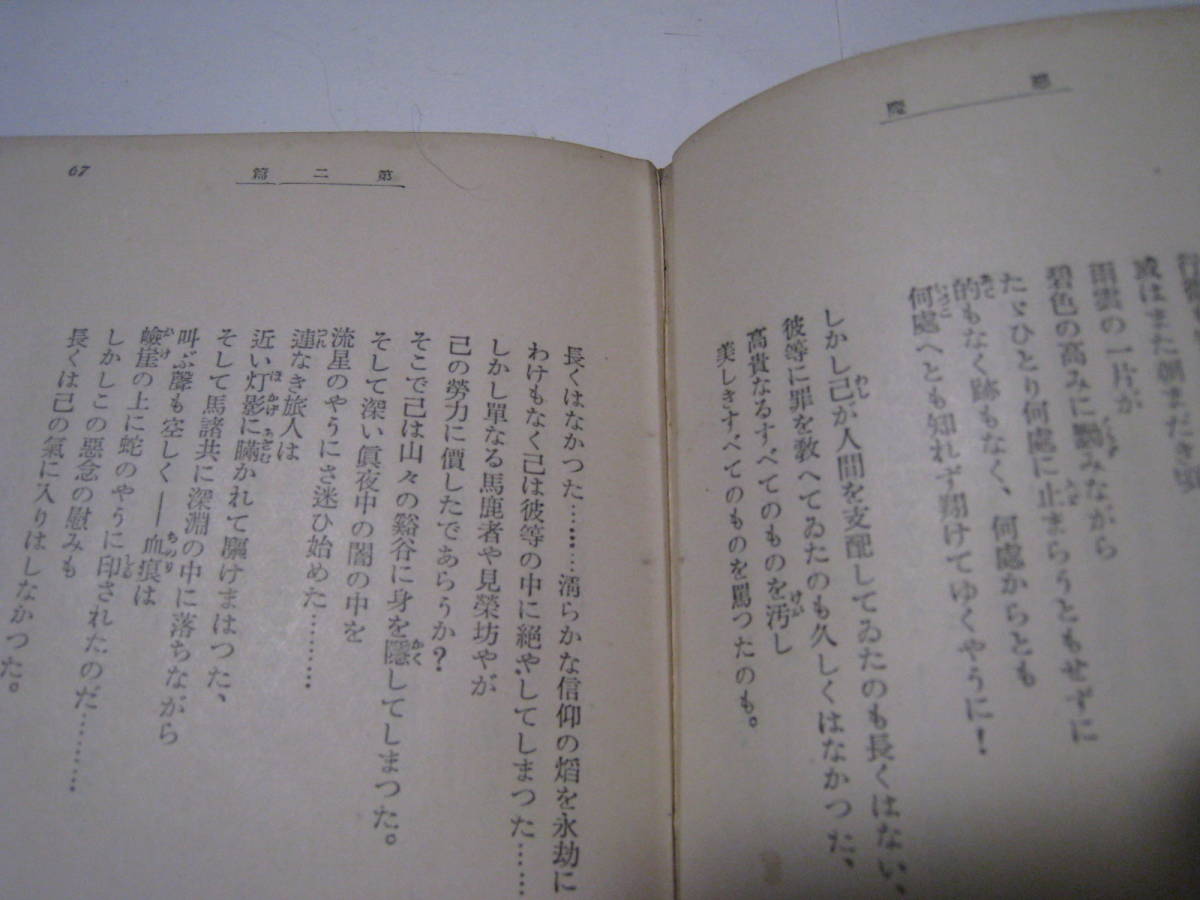 惡魔
行
或はまた朝まだき頃
雨雲の一片が
碧色の高みに飜みながら
たゞひとり何處に止まらうともせずに
的もなく跡もなく、何處からとも
何處へとも知れず翔けてゆくやうに!
しかし己が人間を支配してゐたのも長くはない、
彼等に罪を敎へてゐたのも久しくはなかつた、
高貴なるすべてのものを汚し
美しきすべてのものを罵つたのも。
第二篇
67
長くはなかつた………淸らかな信仰の熖を永劫に
わけもなく己は彼等の中に絶やしてしまつた……
しかし單なる馬鹿者や見榮坊やが
己の勞力に價したであらうか?
そこで己は山々の谿谷に身を隱してしまつた。
そして深い眞夜中の闇の中を
流星のやうにさ迷ひ始めた………
連なき旅人は
近い灯影に瞞かれて驅けまはつた、
そして馬諸共に深淵の中に落ちながら
叫ぶ聲も空しく――血痕は
嶮崖の上に蛇のやうに印されたのだ………
しかしこの惡念の慰みも
長くは己の氣に入りはしなかつた。